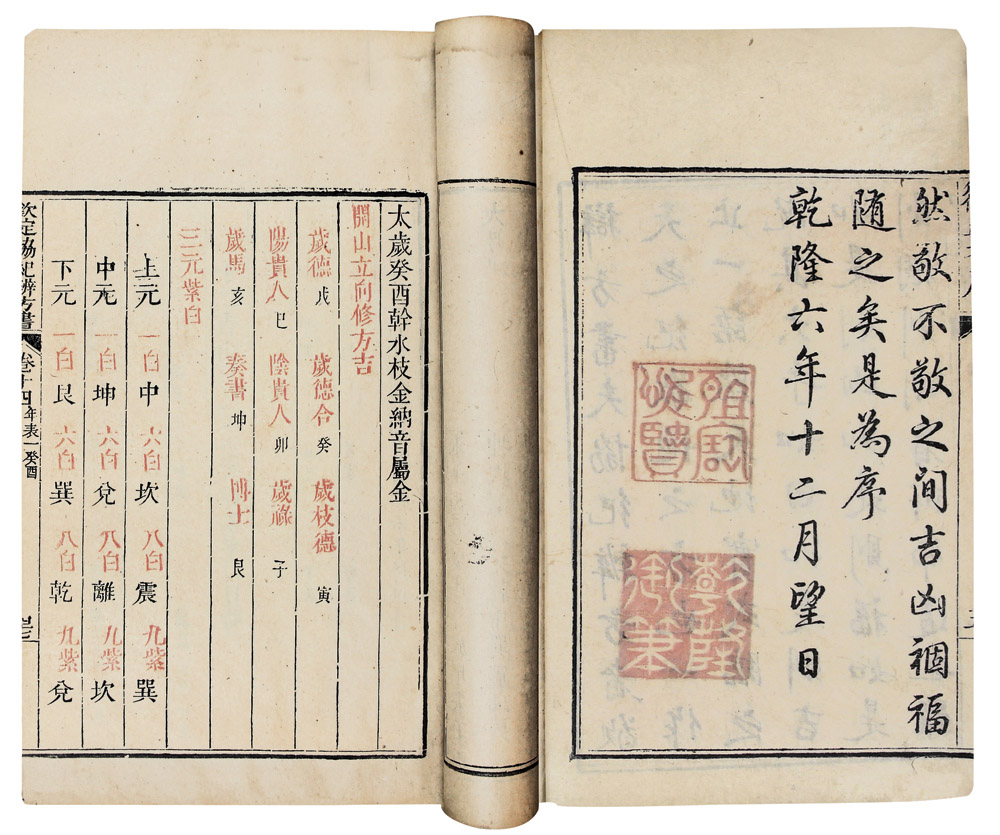 然敬不敬之间吉凶禍福
随之矣是為序
乾隆六年十二月望日
乾隆御筆
太歲癸酉幹水枝金納音屬金
開山立向修方吉
歲德 戊 歲德合 癸 歲枝德 寅
陽貴人 巳 陰貴人 卯 歲祿 子
歲馬 亥 奏書 坤 博士 艮
三元紫白
上元 一白 中 六白 坎 八白 震 九紫 巽
中元 一白 坤 六白 兌 八白 離 九紫 坎
下元 一白 艮 六白 巽 八白 乾 九紫 兌
欽定協紀辨方書 卷十四 年表一 癸酉